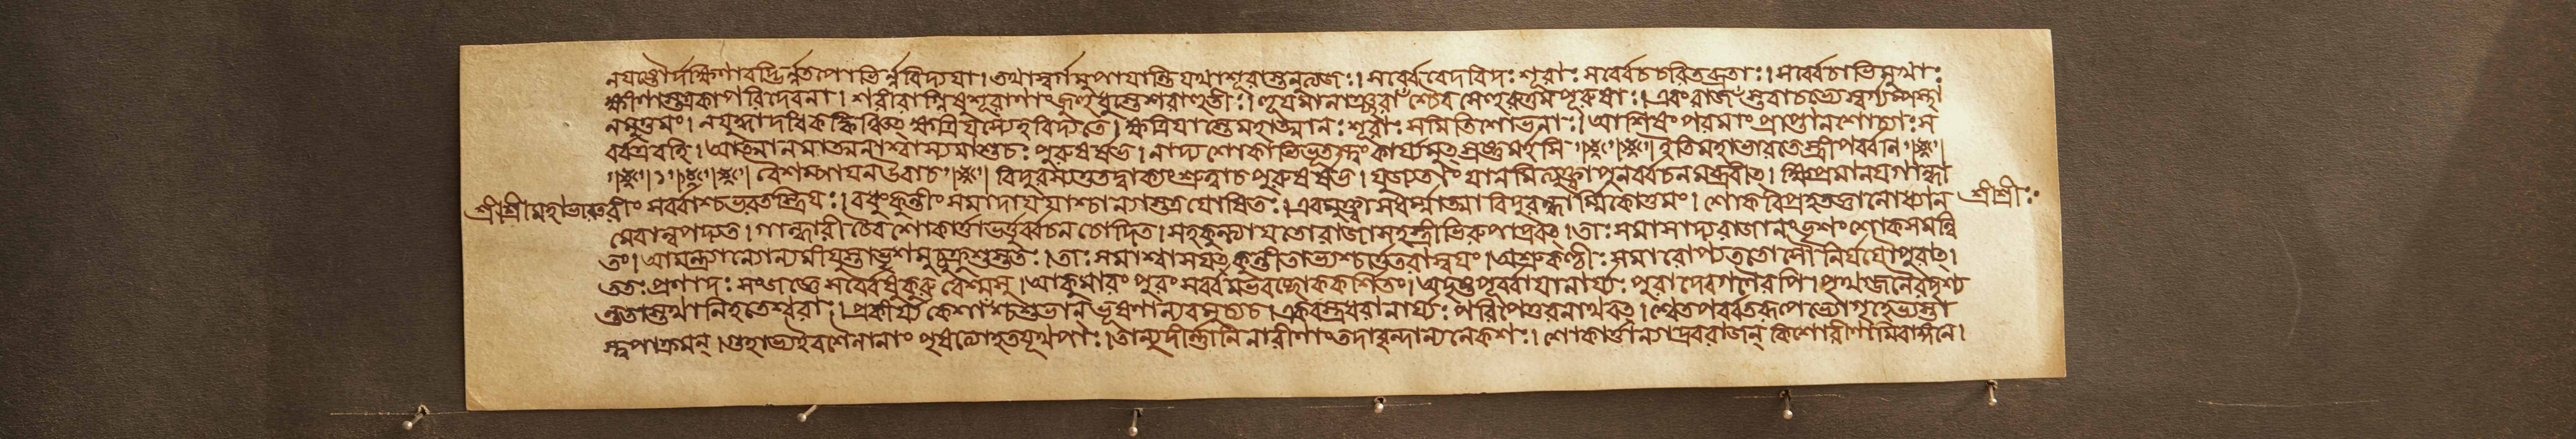 নযজ্ঞৈর্দক্ষিণাবদ্ভির্ন্নতপোভির্ন্নবিদ্যযা। তথাস্বর্গমুপাযান্তি যথাশূরাস্তনুত্যজঃ। সর্ব্বেবেদবিদঃ শূরাঃ সর্ব্বেচচরিতব্রতাঃ। সর্ব্বেচাভিমুখাঃ
ক্ষীণাস্তত্রকাপরিদেবনা। শরীরাগ্নিষুশূরাণাং জুহুবুস্তেশরাহুতীঃ। হূযমানাঞ্ছরাঁশ্চৈব সেহুরুত্তমপূরুষাঃ। এবংরাজঁস্তবাচক্ষেস্বর্গ্যম্পন্থা
নমুত্তমং। নযুদ্ধাদধিকঙ্কিঞ্চিৎ ক্ষত্রিযস্যেহবিদ্যতে। ক্ষত্রিযাস্তেমহাত্মানঃ শূরাঃ সমিতিশোভনাঃ। আশিষং পরমাং প্রাপ্তানশোচ্যাঃ স
র্ব্বএবহি। আত্মানমাত্মনাশ্বাস্যমাশুচঃ পুরুষর্ষভ। নাদ্য শোকাভিভূতস্ত্বং কার্য্যমুৎস্রষ্টুমর্হসি ইতিমহাভারতেস্ত্রীপর্ব্বণি
।১। বৈশম্পাযনউবাচ বিদুরস্যতুতদ্বাক্যংশ্রুত্বাচ পুরুষর্ষভ। যুজ্যতাং যানমিত্যুক্ত্বাপুনর্ব্বচনমব্রবীৎ। ক্ষিপ্রমানযগান্ধা
শ্রীশ্রীমহাভারত রীং সর্ব্বাশ্চভরতস্ত্রিযঃ। বধুংকুন্তীং সমাদাযযাশ্চান্যাস্তত্রযোষিতঃ। এবমুক্ত্বাসধর্ম্মাত্মা বিদুরন্ধর্ম্মবিত্তমং। শোকবিপ্রহতজ্ঞানোযান শ্রীশ্রীঃ
মেবান্বপদ্যত। গান্ধারী চৈব শোকার্ত্তাভর্ত্তুর্ব্বচনচোদিতা। সহকুন্ত্যাযতোরাজাসহস্ত্রীভিরুপাদ্রবৎ। তাঃ সমাসাদ্যরাজানং ভৃশং শোকসমন্বি
তাঃ। আমন্ত্র্যান্যোন্যমীযুস্তাভৃশমুচ্চুক্রুশুস্ততঃ। তাঃ সমাশ্বাসযৎ ক্ষত্তাতাভ্যশ্চার্ত্ততরাস্বযং। অশ্রুকণ্ঠীঃ সমারোপ্যততোসৌ নির্যযৌপুরাৎ।
ততঃ প্রণাদঃ সংজজ্ঞে সর্ব্বেষুকুরুবেশ্মসু। আকুমারং পুরং সর্ব্বমভবচ্ছোককর্শিতং। অদৃষ্টপূর্ব্বাযানার্য্যঃ পুরাদেবগণৈরপি। পৃথগ্জনৈরদৃশ্য
ন্ততাস্তথানিহতেশ্বরাঃ। প্রকীর্য্য কেশাংশ্চশুভান্ ভূষণান্যবমুচ্যচ। একবস্ত্রধরানার্য্যঃ পরিপেতুরনাথবৎ। শ্বেতপর্ব্বতরূপেভ্যোগৃহেভ্যস্তা
স্ত্বপাক্রমন্। গুহাভ্যইবশৈলানাং পৃষত্যোহতযূথপাঃ। তান্যুদীর্ণানি নারীণাং তদাবৃন্দান্যনেকশঃ। শোকার্ত্তান্যদ্রবরাজন্ কিশোরীণামিবাঙ্গনে।